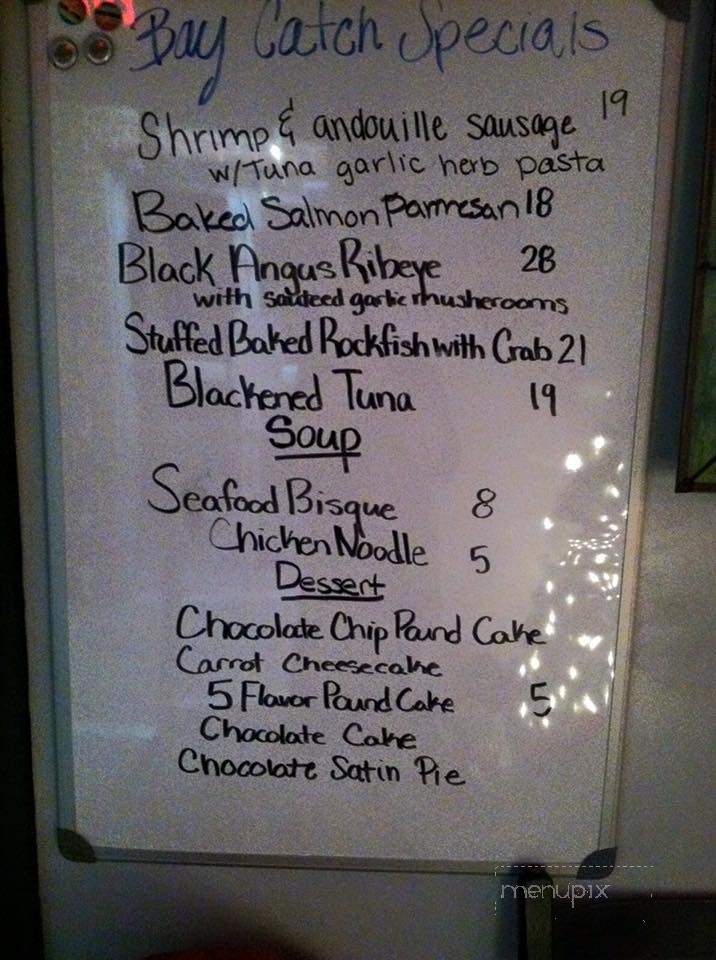 Bay Catch Specials
Shrimp & andouille sausage 19
w/Tuna garlic herb pasta
Baked Salmon Parmesan 18
Black Angus Ribeye 28
with sauteed garlic musherooms
Stuffed Baked Rockfish with Crab 21
Blackened Tuna 19
Soup
Seafood Bisque 8
Chicken Noodle 5
Dessert
Chocolate Chip Pound Cake
Carrot Cheesecake
5 Flavor Pound Cake 5
Chocolate Cake
Chocolate Satin Pie
menupix